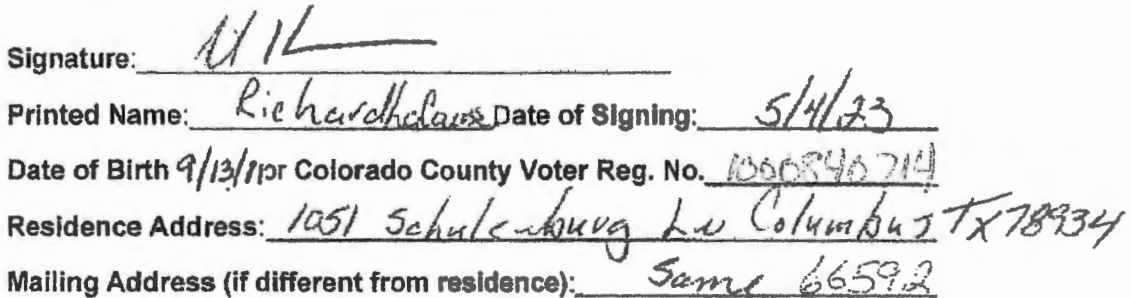 Signature:
Printed Name: Richard Date of Signing: 5/4/23
Date of Birth 9/13/ or Colorado County Voter Reg. No. 1000840714
Residence Address: 1051 Schulenburg Ln Columbus TX 78934
Mailing Address (if different from residence): Same 66592